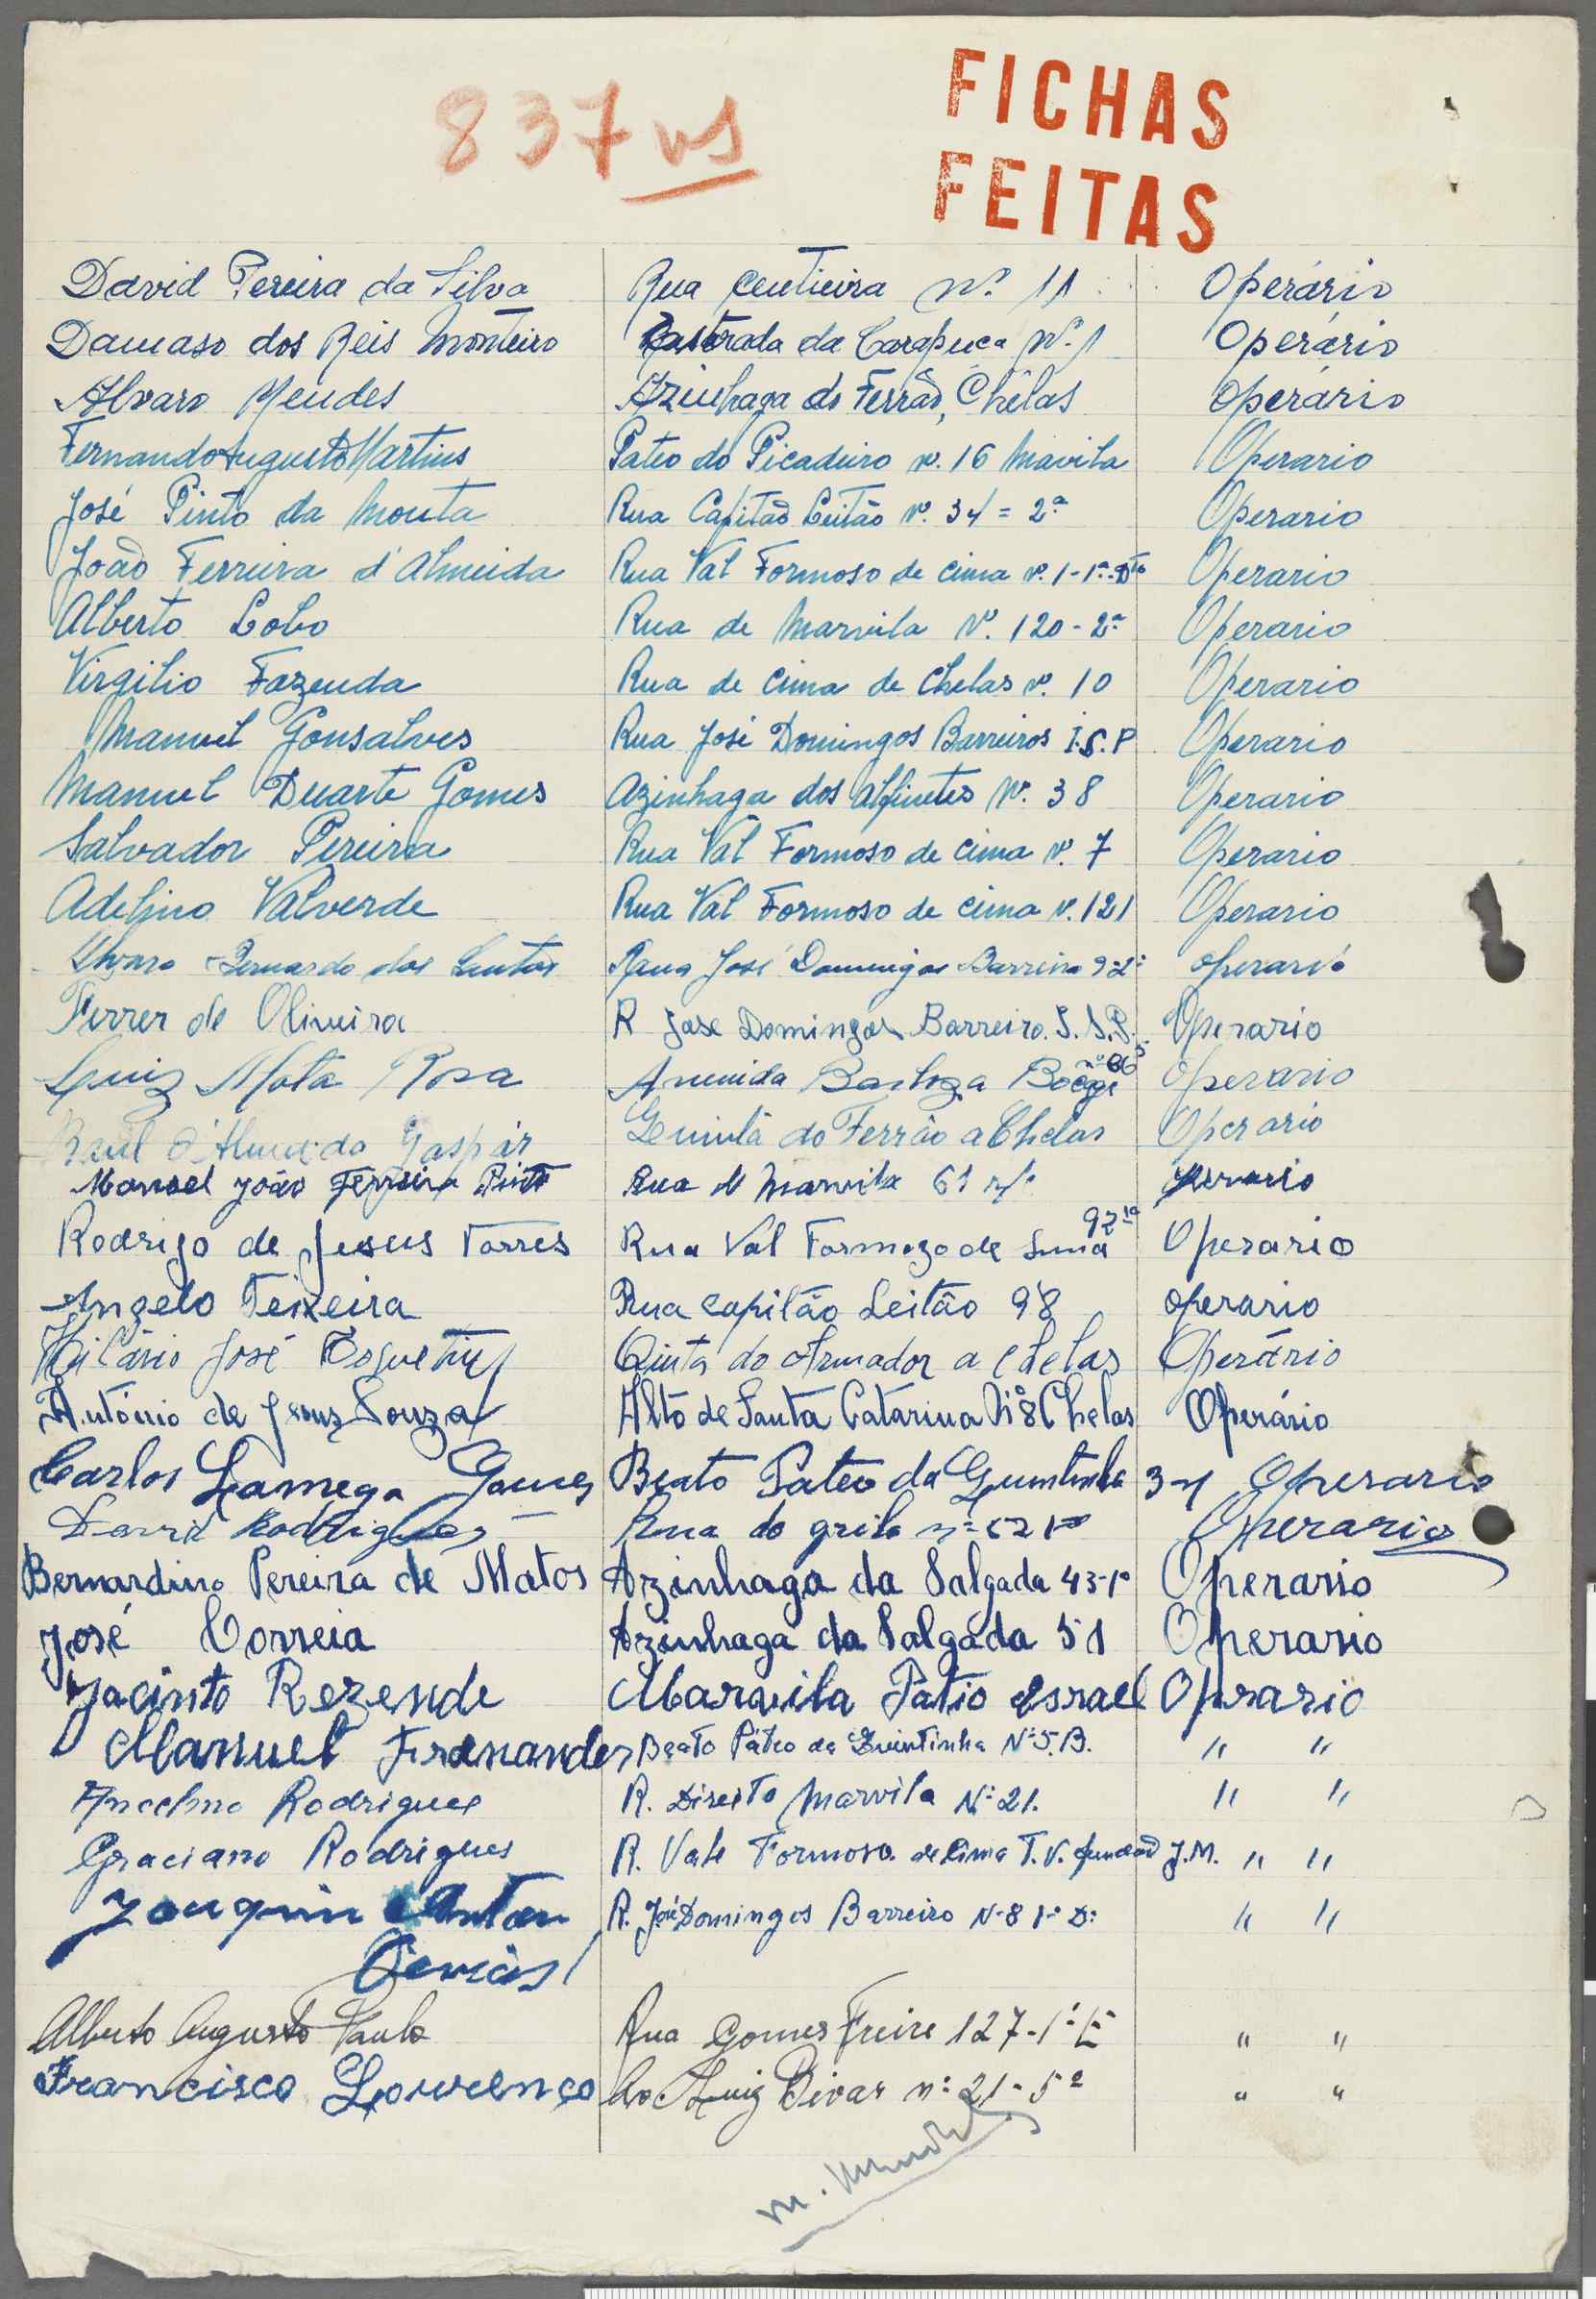 837 vs
FICHAS
FEITAS
David Pereira da Silva Rua Centieira nº 11 Operário
Damaso dos Reis Monteiro Estrada da Carapuça Nº 1 Operário
Alvaro Mendes Azinhaga do Ferrão, Chélas Operário
Fernando Augusto Martins Pateo do Picadeiro nº. 16 Mavila Operario
José Pinto da Mouta Rua Capitão Leitão Nº. 34 = 2º Operario
João Ferreira d'Almeida Rua Val Formoso de Cima nº. 1-1º-Dto Operario
Alberto Lobo Rua de Marvila Nº. 120-2º Operario
Virgilio Fazenda Rua de Cima de Chelas nº. 10 Operario
Manuel Gonsalves Rua José Domingos Barreiros I.S.P Operario
Manuel Duarte Gomes Azinhaga dos Alfinetes Nº. 38 Operario
Salvador Pereira Rua Val Formoso de Cima nº. 7 Operario
Adelino Valverde Rua Val Formoso de Cima nº. 121 Operario
Bernardo dos Santos José Domingos Barreiro 9-2º operario
Ferrer de Oliveira R Jose Domingos Barreiro. Operario
Luiz Mota Rosa Avenida Operario
Raul d'Almeida Gaspar do Ferrão a Chelas Operario
Manoel João Ferreira Pinto Rua de Marvila 61 r/c
Rodrigo de Jesus Torres Rua Val Formozo de Suma 92 1º Operario
Angelo Teixeira Rua capitão Leitão 98 operario
Hilário José Quinta do Armador a Chelas Operário
António de Jesus Souza Alto de Santa Catarina Nº 8 Chelas Operário
Carlos Lamega Gomes Beato Pateo da Quintinha 34 Operario
David Rodrigues Rua do grilo Operario
Bernardino Pereira de Matos Azinhaga da Salgada 43-1º Operario
José Correia Azinhaga da Salgada 51 Operario
Jacinto Rezende Marvila Patio Israel Oprario
Manuel Fernandes Beato Páteo da Quintinha Nº 5.B. " "
Ancelmo Rodrigues R. Direita Marvila Nº 21. " "
Graciano Rodrigues R. Vale Formoso de Cima T.V. J.M. " "
Joaquim R. José Domingos Barreiro Nº 8 1º Dº " "
Alberto Augusto Paulo Rua Gomes Freire 127-1º E " "
Francisco Lourenço Av Luiz Bivar nº 21-5º " "